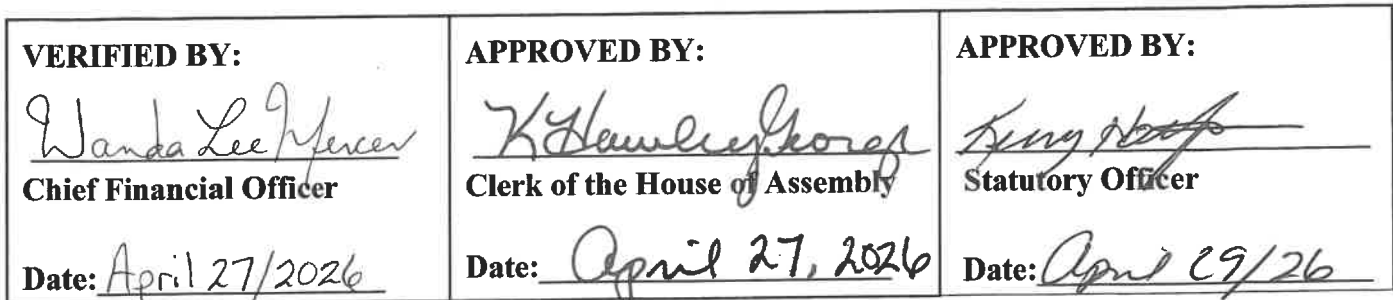 VERIFIED BY:
Wanda Lee Mercer
Chief Financial Officer
Date: April 27/2026
APPROVED BY:
K Hawley George
Clerk of the House of Assembly
Date: April 27, 2026
APPROVED BY:
Kerry
Statutory Officer
Date: April 29/26